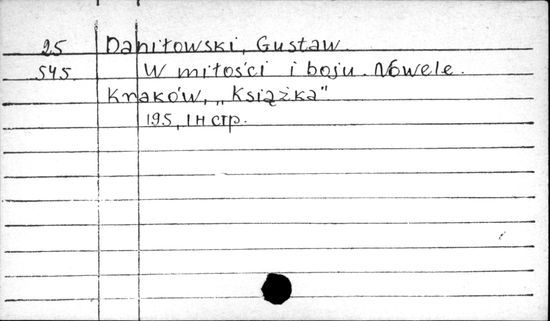 25 Daniłowski, Gustaw.
545. W miłości i boju. Nowele.
Kraków, „Książka"
195, 1 н стр.